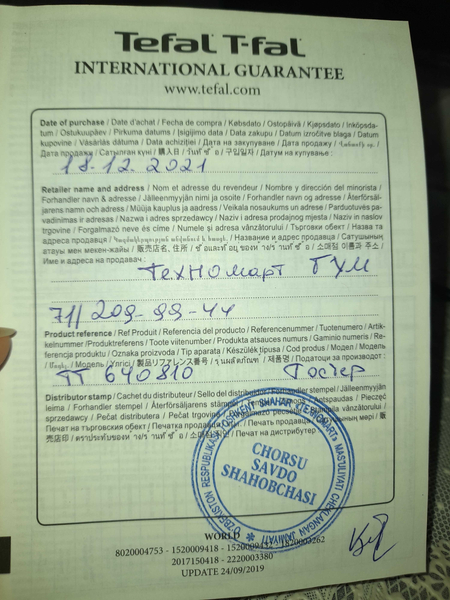 Tefal T-fal
INTERNATIONAL GUARANTEE
www.tefal.com
Date of purchase / Date d'achat / Fecha de compra / Købsdato / Ostopäivä / Kjøpsdato / Inköpsda-
tum / Ostukuupäev / Pirkuma datums / Įsigijimo data / Data zakupu / Datum izročitve blaga / Datum
kupovine / Vásárlás dátuma / Data achiziției / Датата на закупуване / Дата продажу /
Дата продажи / Сатылған күні / 購入日 / 구입일자 / Датум на купување :
18.12.2021
Retailer name and address / Nom et adresse du revendeur / Nombre y dirección del minorista /
Forhandler navn & adresse / Jälleenmyyjän nimi ja osoite / Forhandler navn og adresse / Återförsäl-
jarens namn och adress / Müüja kauplus ja aadress / Veikala nosaukums un adrese / Parduotuvės pa-
vadinimas ir adresas / Nazwa i adres sprzedawcy / Naziv i adresa prodajnog mjesta / Naziv in naslov
trgovine / Forgalmazó neve és címe / Numele și adresa vânzătorului / Търговки обект / Назва та
адреса продавця / Название и адрес продавца / Сатушының
атауы мен мекен-жайы / 販売店名、住所 / 소매점 이름과 주소 /
Име и адреса на продавачот :
Техномарт ГУМ
71/ 209-99-44
Product reference / Ref Produit / Referencia del producto / Referencenummer / Tuotenumero / Artik-
kelnummer / Produktreferens / Toote viitenumber / Produkta atsauces numurs / Gaminio numeris / Re-
ferencja produktu / Oznaka proizvoda / Tip aparata / Készülék típusa / Cod produs / Модел / Модель
/ Модель / Үлгісі / 製品リファレンス番号 / 제품명 / Податоци за производот :
TT 640810 Тостер
Distributor stamp / Cachet du distributeur / Sello del distribuidor / Forhandler stempel / Jälleenmyyjän
leima / Forhandler stempel / Återförsäljarens stämpel / Pieczęć
sprzedawcy / Pečat distributera / Pečat trgovine /
Печат на търговския обект / Печатка продавця / Печать продавца /
販売店印 / 소매점 / Печат на дистрибутер :
CHORSU
SAVDO
SHAHOBCHASI
WORLD
8020004753 - 1520009418 - 1520009437 - 1820003262
2017150418 - 2220003380
UPDATE 24/09/2019